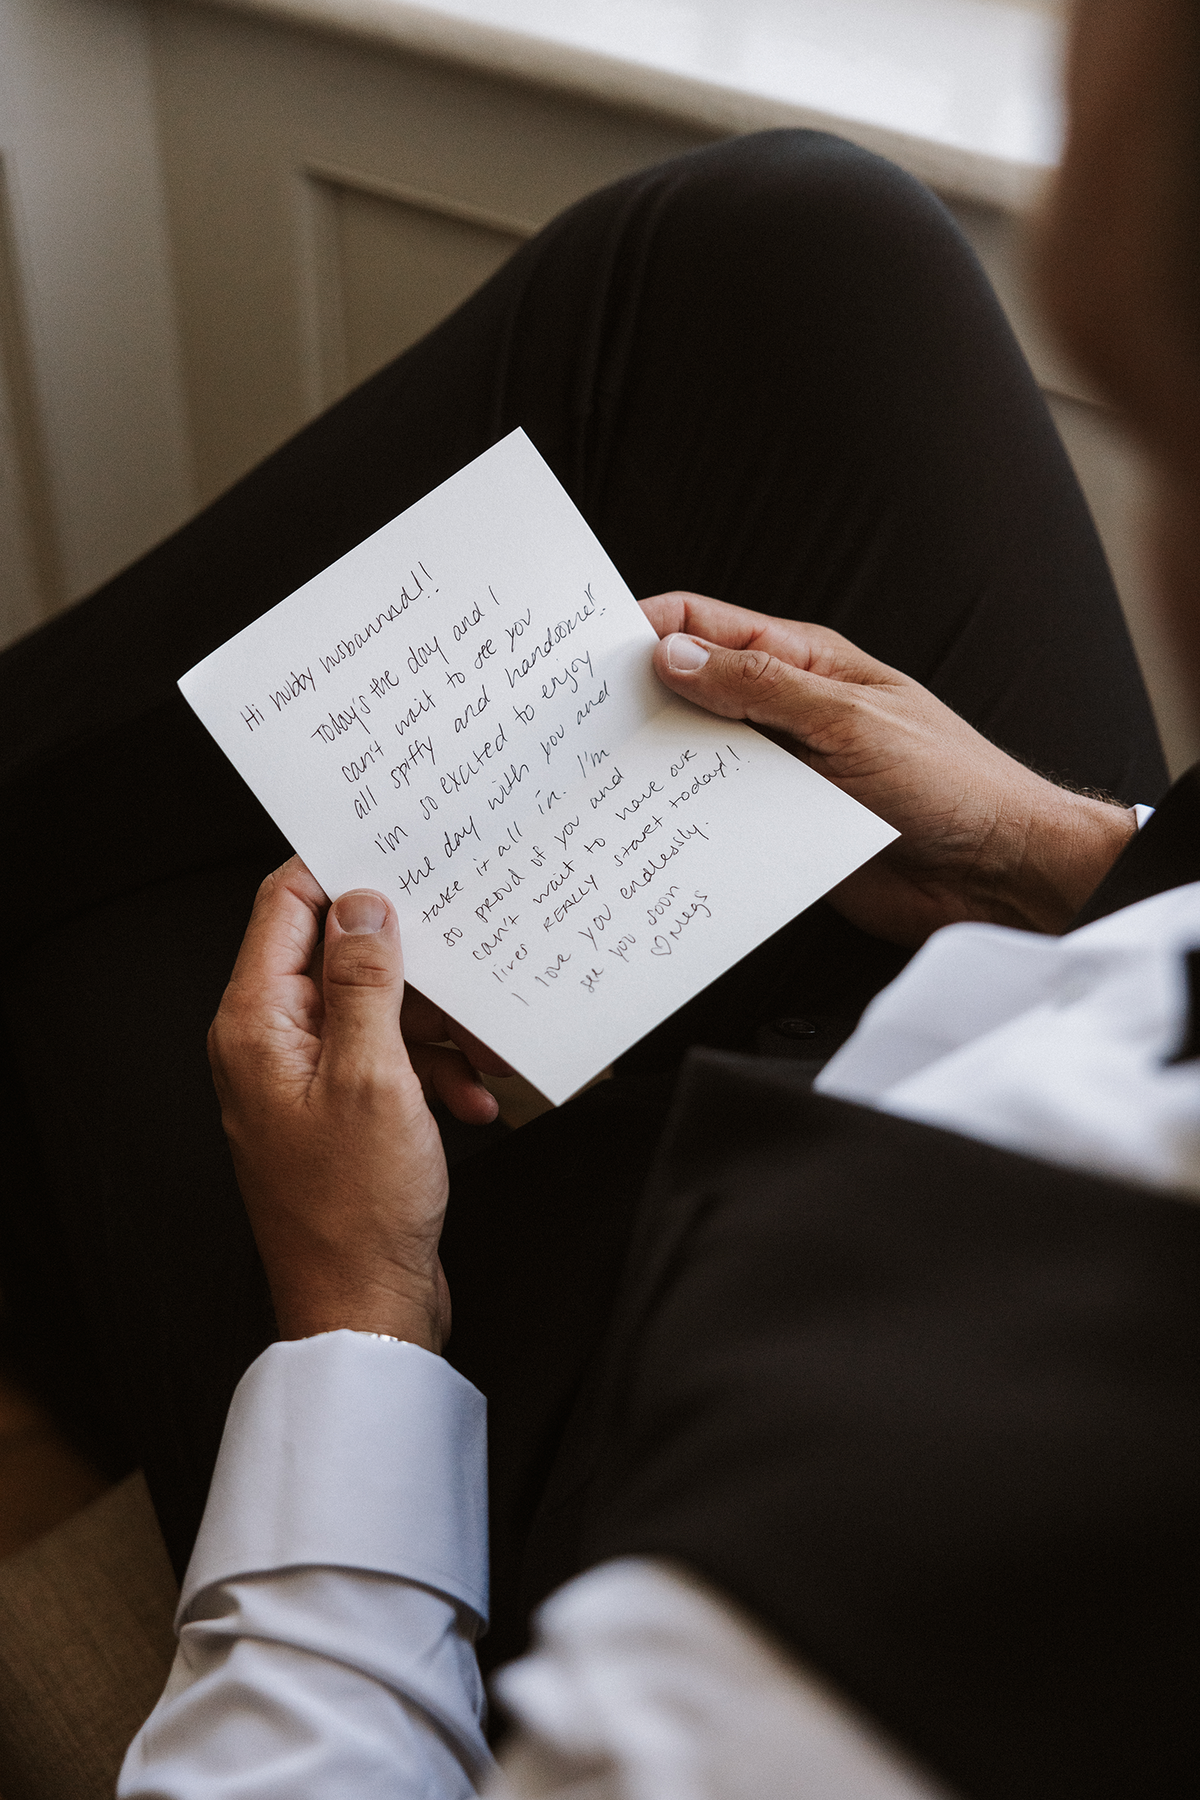 Hi hubby husbannnd!!
Today's the day and I
can't wait to see you
all spiffy and handsome!!
I'm so excited to enjoy
the day with you and
take it all in. I'm
so proud of you and
can't wait to have our
lives REALLY start today!!
I love you endlessly.
see you soon
♡ Megs